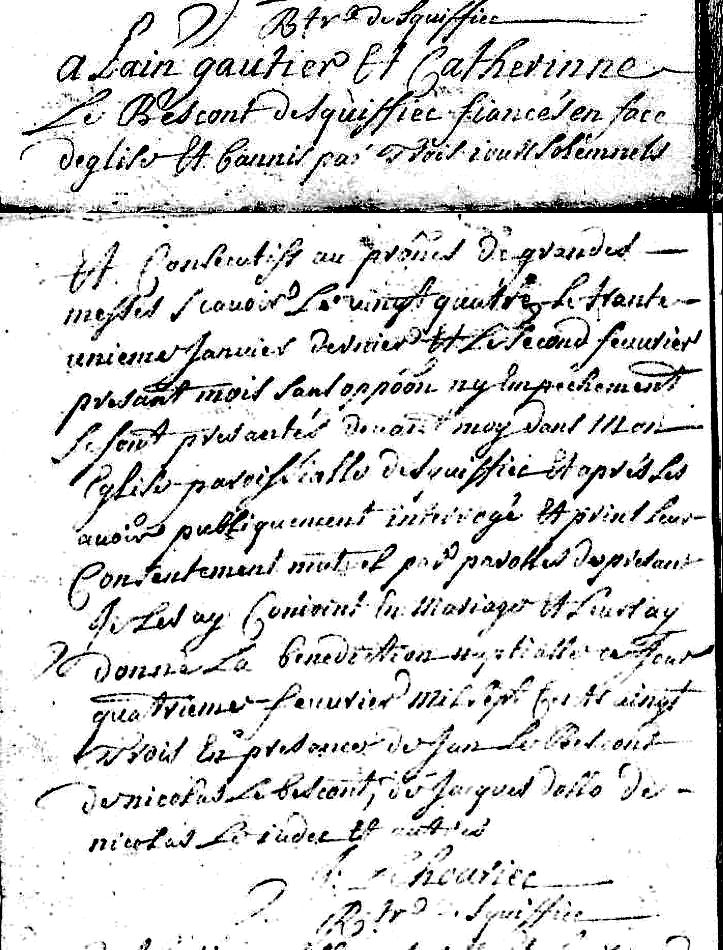 Rtr de Squiffiec
alain gautier Et Catherinne
Le Bescont de Squiffiec fiancés en face
deglise Et bannis par Trois iours solemnels
Et Consecutifs au prônes de grandes
messes Scauoir Le vingt quatre Le trante
unieme Janvier dernier Et Le second feuurier
presant mois sans oppoôn ny Empechement
se sont presantés deuant moy dans Mon
Eglise paroissialle de Squiffiec Et aprés Les
auoir publiquement interrogé Et prins leur
Consentement mutuel par parolles de présant
Je Les ay Conioint En Mariage et Leur ay
donné La benediction nuptialle ce Jour
quatrieme feuurier Mil sept Cents vingt
Trois En presance de Jan Le Bescont
de nicolas Le bescont, de Jacques dollo de
nicolas Le iudec Et autres
Rtr de Squiffiec